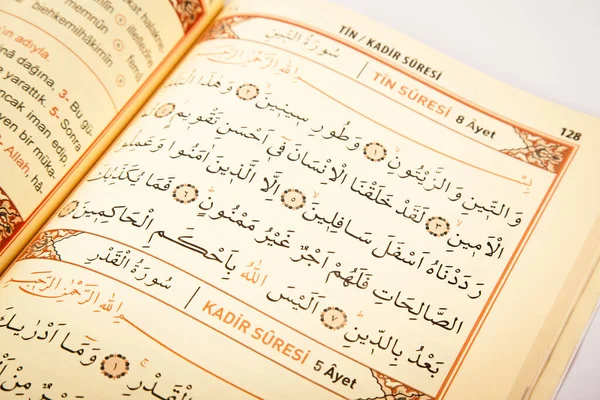 TİN / KADİR SÛRESİ
128
سُورَةُ التّ۪ينِ
TİN SÛRESİ 8 Âyet
بِسْمِ اللّٰهِ الرَّحْمٰنِ الرَّح۪يمِ
وَالتّ۪ينِ وَالزَّيْتُونِۙ ١ وَطُورِ س۪ين۪ينَۙ ٢ وَهٰذَا الْبَلَدِ
الْاَم۪ينِۙ ٣ لَقَدْ خَلَقْنَا الْاِنْسَانَ ف۪ٓي اَحْسَنِ تَقْو۪يمٍۘ ٤
رَدَدْنَاهُ اَسْفَلَ سَافِل۪ينَۙ ٥ اِلَّا الَّذ۪ينَ اٰمَنُوا وَعَمِلُوا
الصَّالِحَاتِ فَلَهُمْ اَجْرٌ غَيْرُ مَمْنُونٍۜ ٦ فَمَا يُكَذِّبُكَ
بَعْدُ بِالدّ۪ينِۜ ٧ اَلَيْسَ اللّٰهُ بِاَحْكَمِ الْحَاكِم۪ينَ
سُورَةُ الْقَدْرِ
KADİR SÛRESİ 5 Âyet
بِسْمِ اللّٰهِ الرَّحْمٰنِ الرَّح۪يمِ
الْقَدْرِۚ ١ وَمَٓا اَدْرٰيكَ
memnûn
illellezîne
biehkemilhâkimîn
ın adıyla.
nâ dağına, 3- Bu gü
yarattık. 5- Sonra
ncak iman edip,
yen bir mükâ-
Allah, hâ-